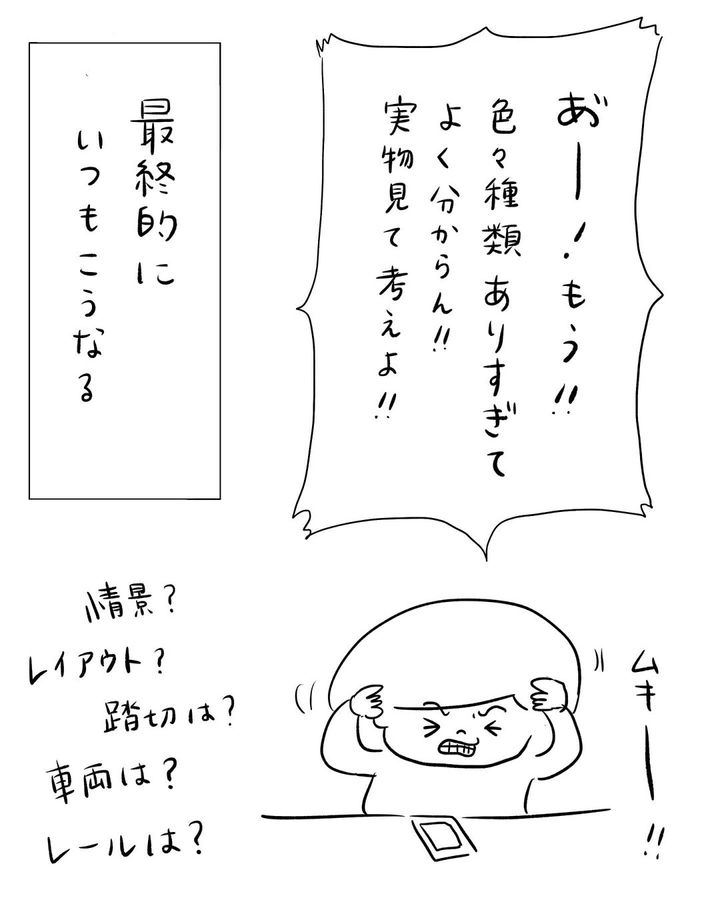 あ゛ー！もう！！
色々種類ありすぎて
よく分からん！！
実物見て考えよ！！
最終的に
いつもこうなる
ムキーー！！
情景？
レイアウト？
踏切は？
車両は？
レールは？